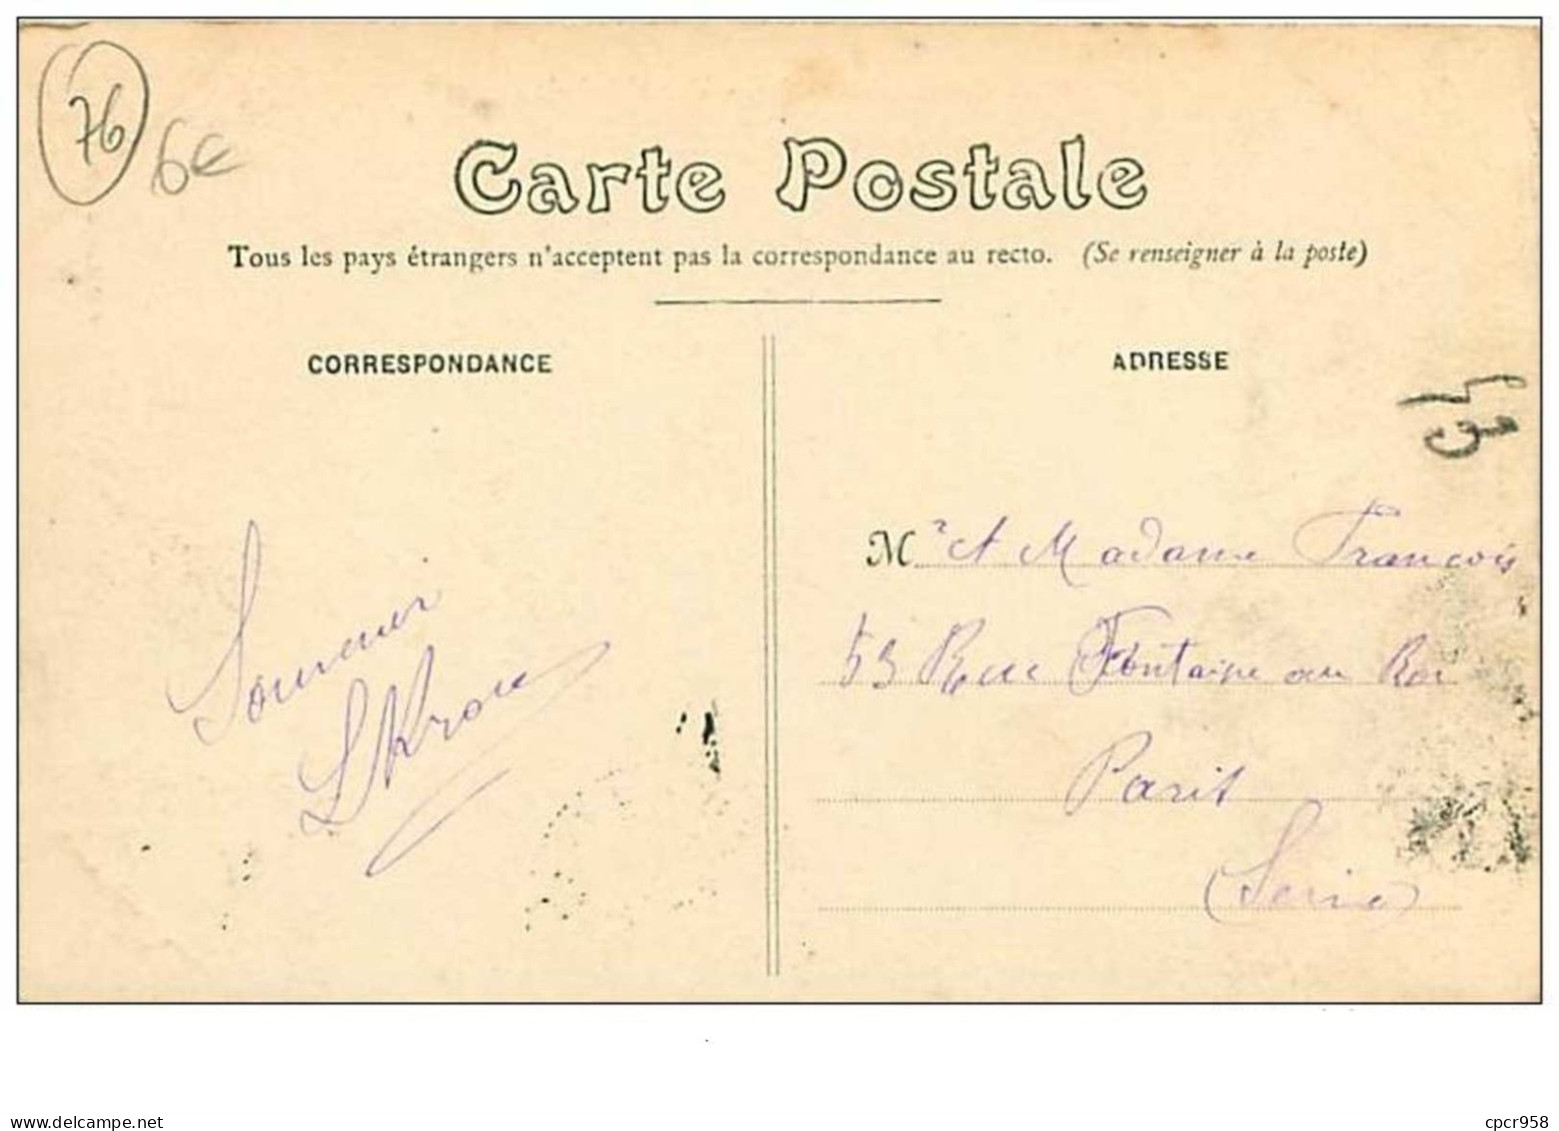 76
6€
Carte Postale
Tous les pays étrangers n'acceptent pas la correspondance au recto. (Se renseigner à la poste)
CORRESPONDANCE
ADRESSE
Souvenir
M r et Madame Francois
53 Rue Fontaine au Roi
Paris
(Seine)
www.delcampe.net
cpcr958